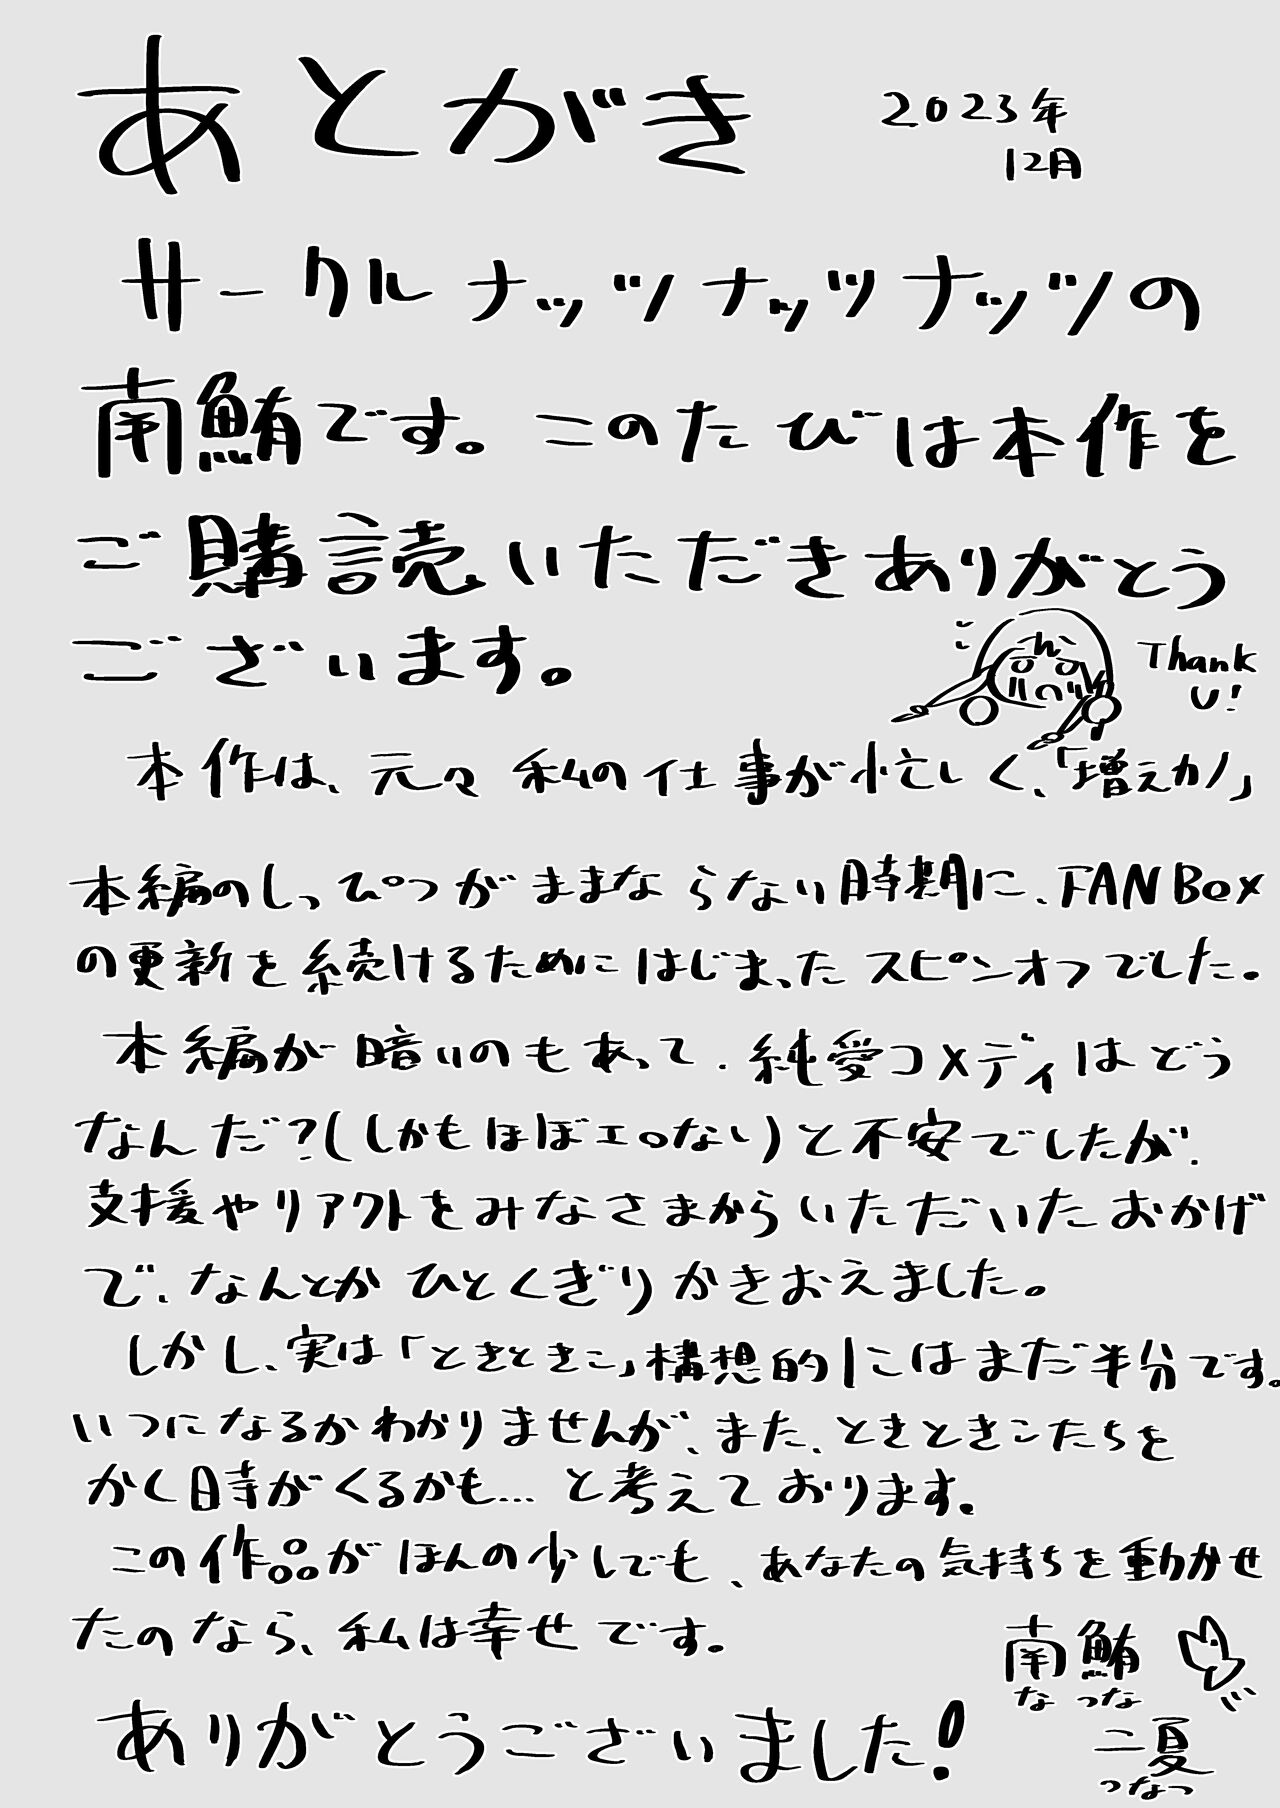 あとがき
2023年
12月
サークルナッツナッツナッツの
南鮪です。このたびは本作を
ご購読いただきありがとう
ございます。
Thank
U!
本作は、元々私の仕事が忙しく、「増えカノ」
本編のしっぴつがままならない時期に、FANBox
の更新を続けるためにはじまったスピンオフでした。
本編が暗いのもあって、純愛コメディはどう
なんだ?(しかもほぼエロない)と不安でしたが、
支援やリアクトをみなさまからいただいたおかげ
で、なんとかひとくぎりかきおえました。
しかし、実は「ときときこ」構想的にはまだ半分です。
いつになるかわかりませんが、また、ときときこたちを
かく時がくるかも…と考えております。
この作品がほんの少しでも、あなたの気持ちを動かせ
たのなら、私は幸せです。
ありがとうございました!
南鮪
なつな
二夏
つなつ